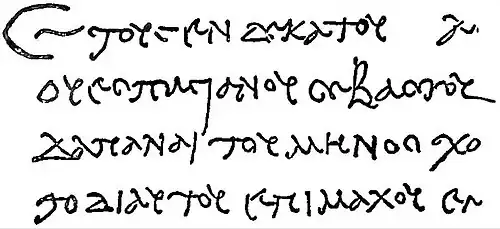 ετους ενδεκατου
ουεσπασιανου σεβαστου
δαπαναι του μηνος χο
επιμαχου